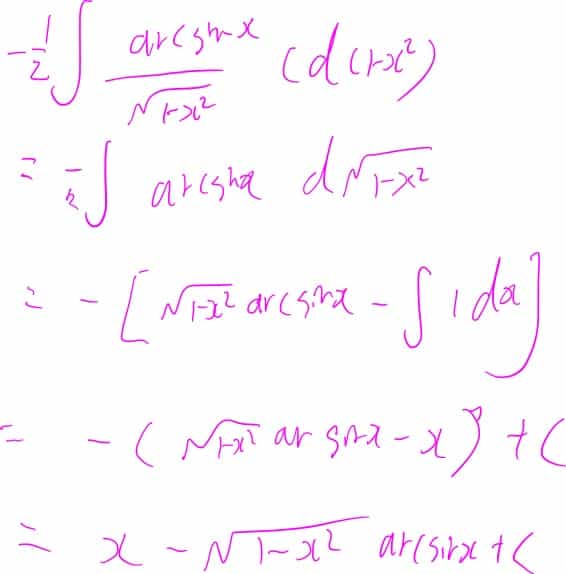 -1/2 ∫ arcsinx/√(1-x²) (d(1-x²)
= -1/2 ∫ arcsinx d√(1-x²)
= - [√(1-x²) arcsinx - ∫ 1 dx]
= - (√(1-x²) arsinx - x) + C
= x - √(1-x²) arcsinx + C